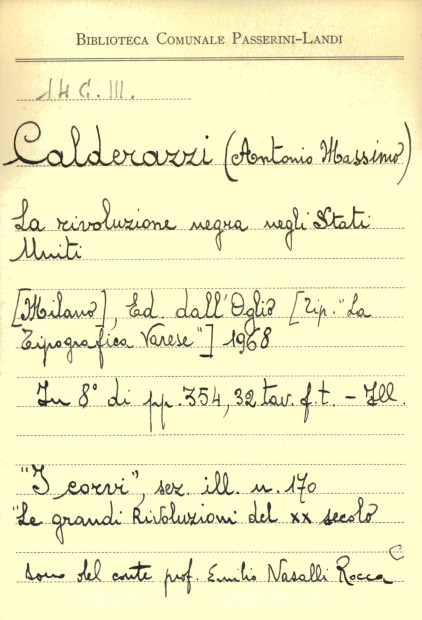 BIBLIOTECA COMUNALE PASSERINI-LANDI
14 G. III.
Calderazzi (Antonio Massimo)
La rivoluzione negra negli Stati
Uniti
[Milano], Ed. dall'Oglio [Tip. "La
Tipografica Varese"] 1968
In 8° di pp. 354, 32 tav. f. t. - Ill.
"I corvi", sez. ill. n. 170
"Le grandi Rivoluzioni del XX secolo
dono del conte prof. Emilio Nasalli Rocca